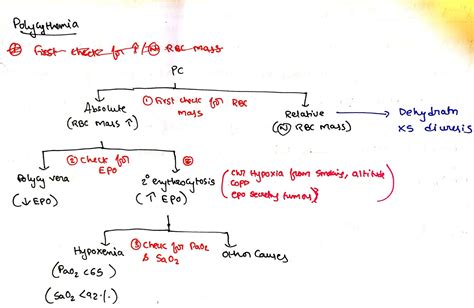 Polycythemia
First check for ↑/(N) RBC mass
PC
① First check for RBC
mass
Absolute
(RBC mass ↑)
Relative
((N) RBC mass)
Dehydratn
XS diuresis
② Check for
EPO
Polycy vera
(↓ EPO)
2° erythrocytosis
(↑ EPO)
Hypoxia from Smoking, altitude
COPD
epo secreting tumors
③ Check for PaO2
& SaO2
Hypoxemia
(PaO2 <65)
(SaO2 <92%)
Other Causes